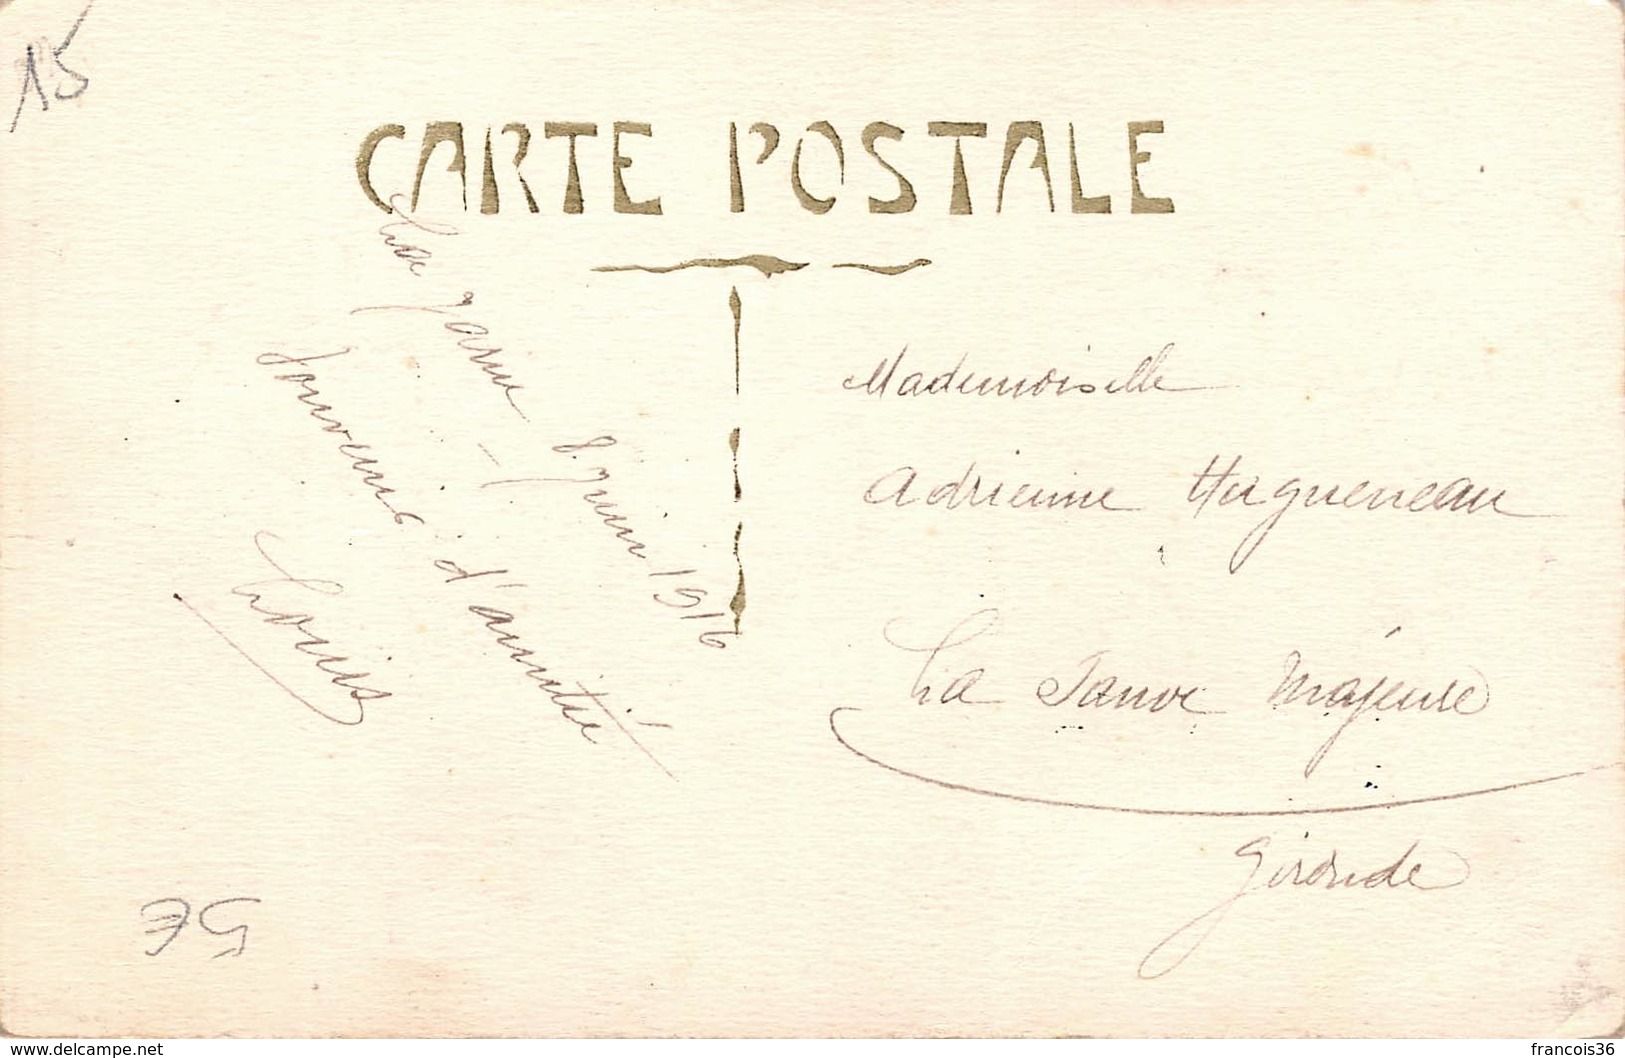 15
CARTE POSTALE
8 Juin 1916
Souvenir d'amitié
Louis
Mademoiselle
Adrienne Hugueneau
La Sauve Majeure
Gironde
75
www.delcampe.net
francois36